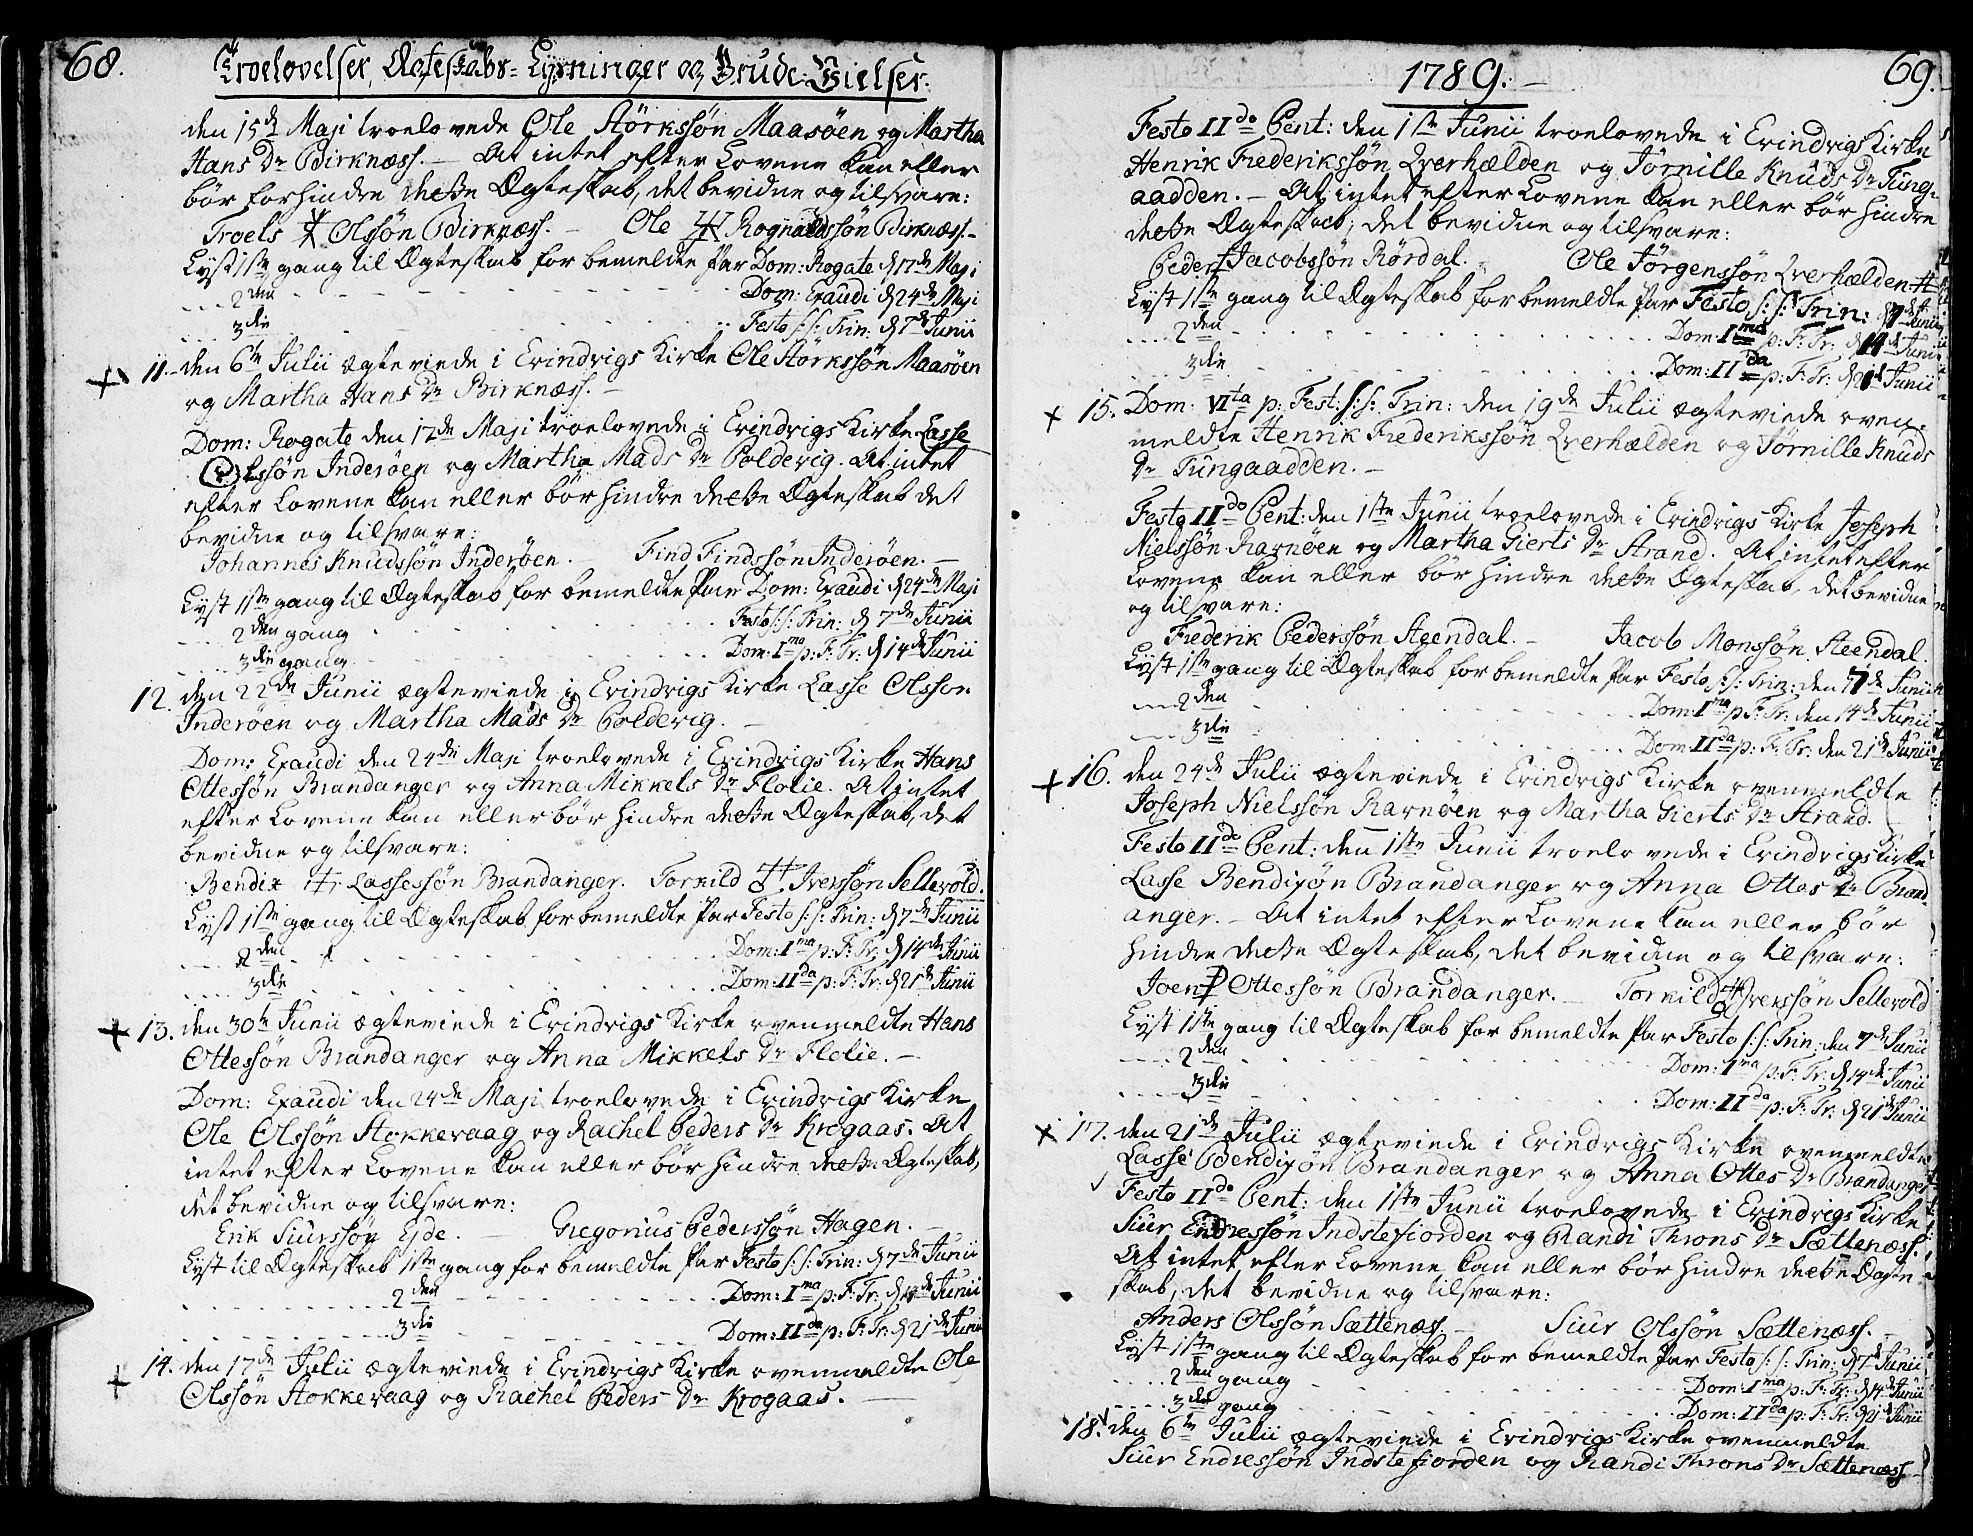 68.
Troelovelser, Ægteskabs-Lysninger og Brude-Vielser.
den 15de Maji troelovede Ole Størkssøn Maasøen og Martha
Hans Dr Birknæss. — At intet efter Lovene kan eller
bør forhindre dette Ægteskab, det bevidne og tilsvare:
Troels Olssøn Birknæss. — Ole Rognaldssøn Birknæss. —
Lyst 1ste gang til Ægteskab for bemeldte Par Dom: Rogate d 17de Maji
2den Dom: Exaudi d 24de Maji
3die Festo s: s: Trin: d 7de Junii
11. den 6te Julii ægteviede i Evindvigs Kirke Ole Størkssøn Maasøen
og Martha Hans Dr Birknæss. —
Dom: Rogate den 17de Maji troelovede i Evindvigs Kirke Lasse
Olssøn Inderøen og Martha Mads Dr Boldevig. At intet
efter Lovene kan eller bør hindre dette Ægteskab det
bevidne og tilsvare:
Johannes Knudssøn Inderøen. — Find Findssøn Inderøen. —
Lyst 1ste gang til Ægteskab for bemeldte Par Dom: Exaudi d 24de Maji
2den gang Festo s: s: Trin: d 7de Junii
3die gang Dom: Ima p: F: Tr: d 14de Junii
12. den 22de Junii ægteviede i Evindvigs Kirke Lasse Olsson
Inderøen og Martha Mads Dr Boldevig. —
Dom: Exaudi den 24de Maji troelovede i Evindvigs Kirke Hans
Ottessøn Brandanger og Anna Mikkels Dr Flolie. At intet
efter Lovene kan eller bør hindre dette Ægteskab, det
bevidne og tilsvare:
Bendix Lassessøn Brandanger. Torkild Iverssøn Sellevold.
Lyst 1ste gang til Ægteskab for bemeldte Par Festo s: s: Trin: d 7de Junii
2den Dom: Ima p: F: Tr: d 14de Junii
3die Dom: IIda p: F: Tr: d 21de Junii
13. den 30te Junii ægteviede i Evindvigs Kirke ovenmeldte Hans
Ottessøn Brandanger og Anna Mikkels Dr Flolie. —
Dom: Exaudi den 24de Maji troelovede i Evindvigs Kirke
Ole Olssøn Stokkevaag og Rachel Peders Dr Krogaas. At
intet efter Lovene kan eller bør hindre dette Ægteskab,
det bevidne og tilsvare:
Erik Siurssøn Eyde. — Gregorius Pederssøn Hagen. —
Lyst til Ægteskab 1ste gang for bemeldte Par Festo s: s: Trin: d 7de Junii
2den Dom: Ima p: F: Tr: d 14de Junii
3die Dom: IIda p: F: Tr: d 21de Junii
14. den 17de Julii ægteviede i Evindvigs Kirke ovenmeldte Ole
Olssøn Stokkevaag og Rachel Peders Dr Krogaas. —
1789. —
69.
Festo IIdo Pent: den 1ste Junii troelovede i Evindvigs Kirke
Henrik Frederikssøn Qverhælden og Jørnille Knuds Dr Tung-
aadden. — At intet efter Lovene kan eller bør hindre
dette Ægteskab; det bevidne og tilsvare:
Peder Jacobssøn Rørdal. — Ole Jørgenssøn Qverhælden
Lyst 1ste gang til Ægteskab for bemeldte Par Festo s: s: Trin: d 7de Junii
2den Dom: Ima p: F: Tr: d 14de Junii
3die Dom: IIda p: F: Tr: d 21de Junii
15. Dom: VIta p: Fest: s: s: Trin: den 19de Julii ægteviede oven-
meldte Henrik Frederikssøn Qverhælden og Jørnille Knuds
Dr Tungaadden. —
Festo IIdo Pent: den 1ste Junii troelovede i Evindvigs Kirke Joseph
Nielssøn Ravnøen og Martha Gierts Dr Strand. At intet efter
Lovene kan eller bør hindre dette Ægteskab, det bevidne
og tilsvare:
Frederik Pederssøn Steendal. — Jacob Monssøn Steendal.
Lyst 1ste gang til Ægteskab for bemeldte Par Festo s: s: Trin: den 7de Junii
2den Dom: Ima p: F: Tr: den 14de Junii
3die Dom: IIda p: F: Tr: den 21de Junii
16. den 24de Julii ægteviede i Evindvigs Kirke ovenmeldte
Joseph Nielssøn Ravnøen og Martha Gierts Dr Strand.
Festo IIdo Pent: den 1ste Junii troelovede i Evindvigs Kirke
Lasse Bendixøn Brandanger og Anna Ottes Dr Brand-
anger. — At intet efter Lovene kan eller bør
hindre dette Ægteskab, det bevidne og tilsvare:
Joen Ottessøn Brandanger. — Torkild Iverssøn Sellevold
Lyst 1ste gang til Ægteskab for bemeldte Par Festo s: s: Trin: den 7de Junii
2den Dom: Ima p: F: Tr: d 14de Junii
3die Dom: IIda p: F: Tr: d 21de Junii
17. den 21de Julii ægteviede i Evindvigs Kirke ovenmeldte
Lasse Bendixøn Brandanger og Anna Ottes Dr Brandanger
Festo IIdo Pent: den 1ste Junii troelovede i Evindvigs Kirke
Siur Endressøn Indstefiorden og Randi Throns Dr Sættenæss.
At intet efter Lovene kan eller bør hindre dette Ægte-
skab, det bevidne og tilsvare:
Anders Olssøn Sættenæss. — Siur Olssøn Sættenæss. —
Lyst 1ste gang til Ægteskab for bemeldte Par Festo s: s: Trin: d 7de Junii
2den gang Dom: Ima p: F: Tr: d 14de Junii
3die gang Dom: IIda p: F: Tr: d 21de Junii
18. den 6te Julii ægteviede i Evindvigs Kirke ovenmeldte
Siur Endressøn Indstefiorden og Randi Throns Dr Sættenæss